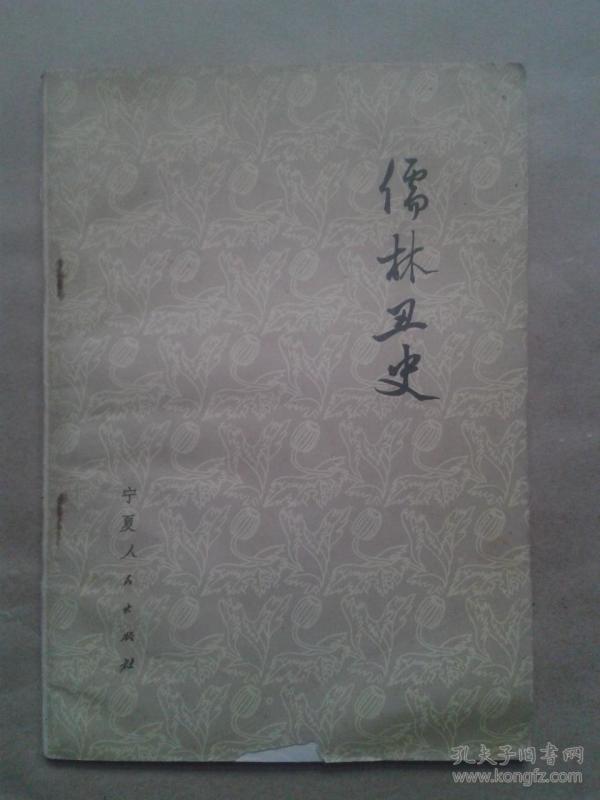 儒林丑史
宁夏人民出版社
孔夫子旧书网
www.kongfz.com